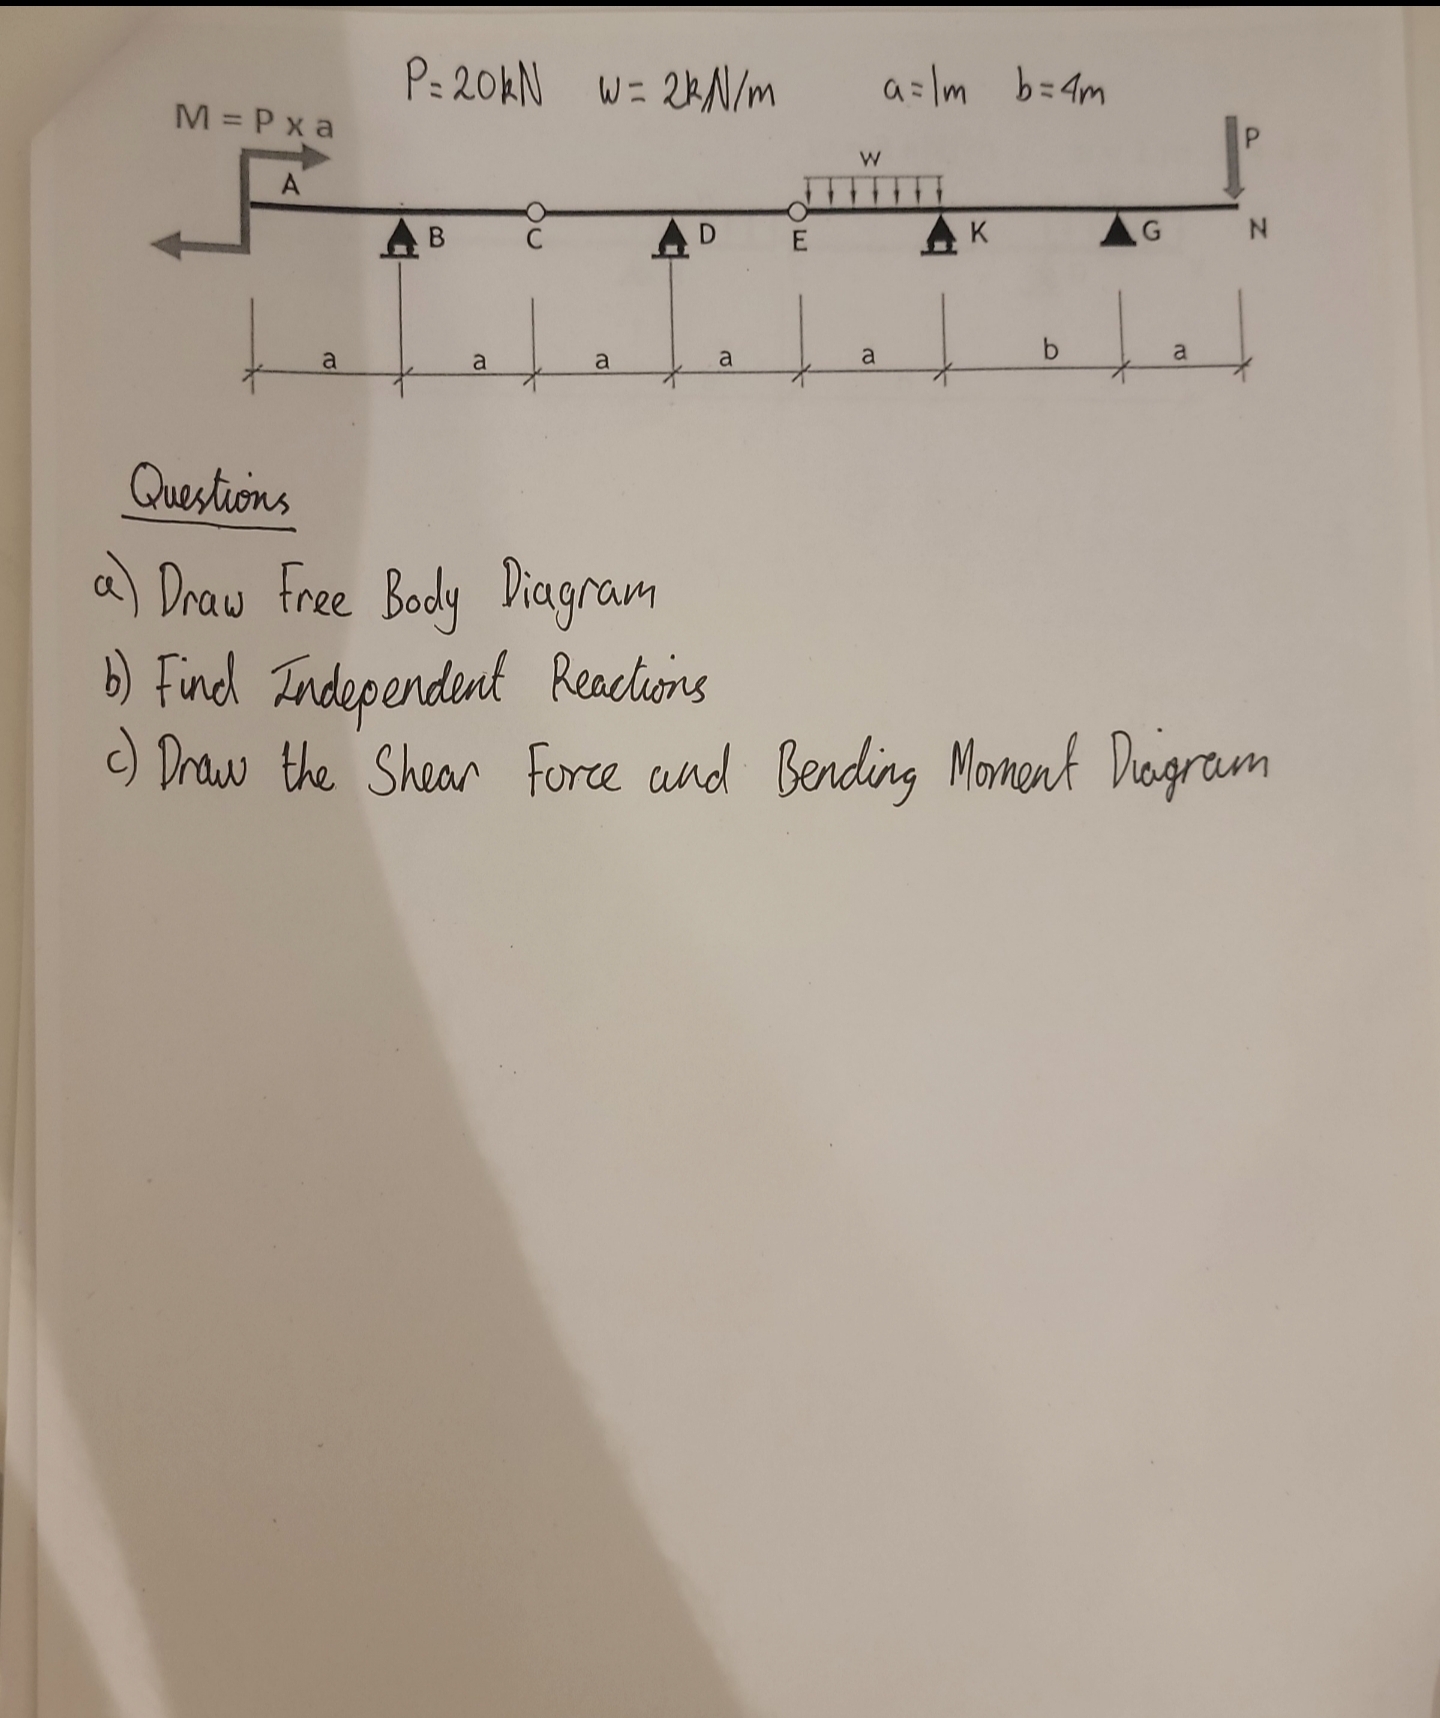 P=20kN w=2kN/m a=1m b=4m
M = P x a
P
w
A
B C D E K G N
a a a a a b a
Questions
a) Draw Free Body Diagram
b) Find Independent Reactions
c) Draw the Shear Force and Bending Moment Diagram